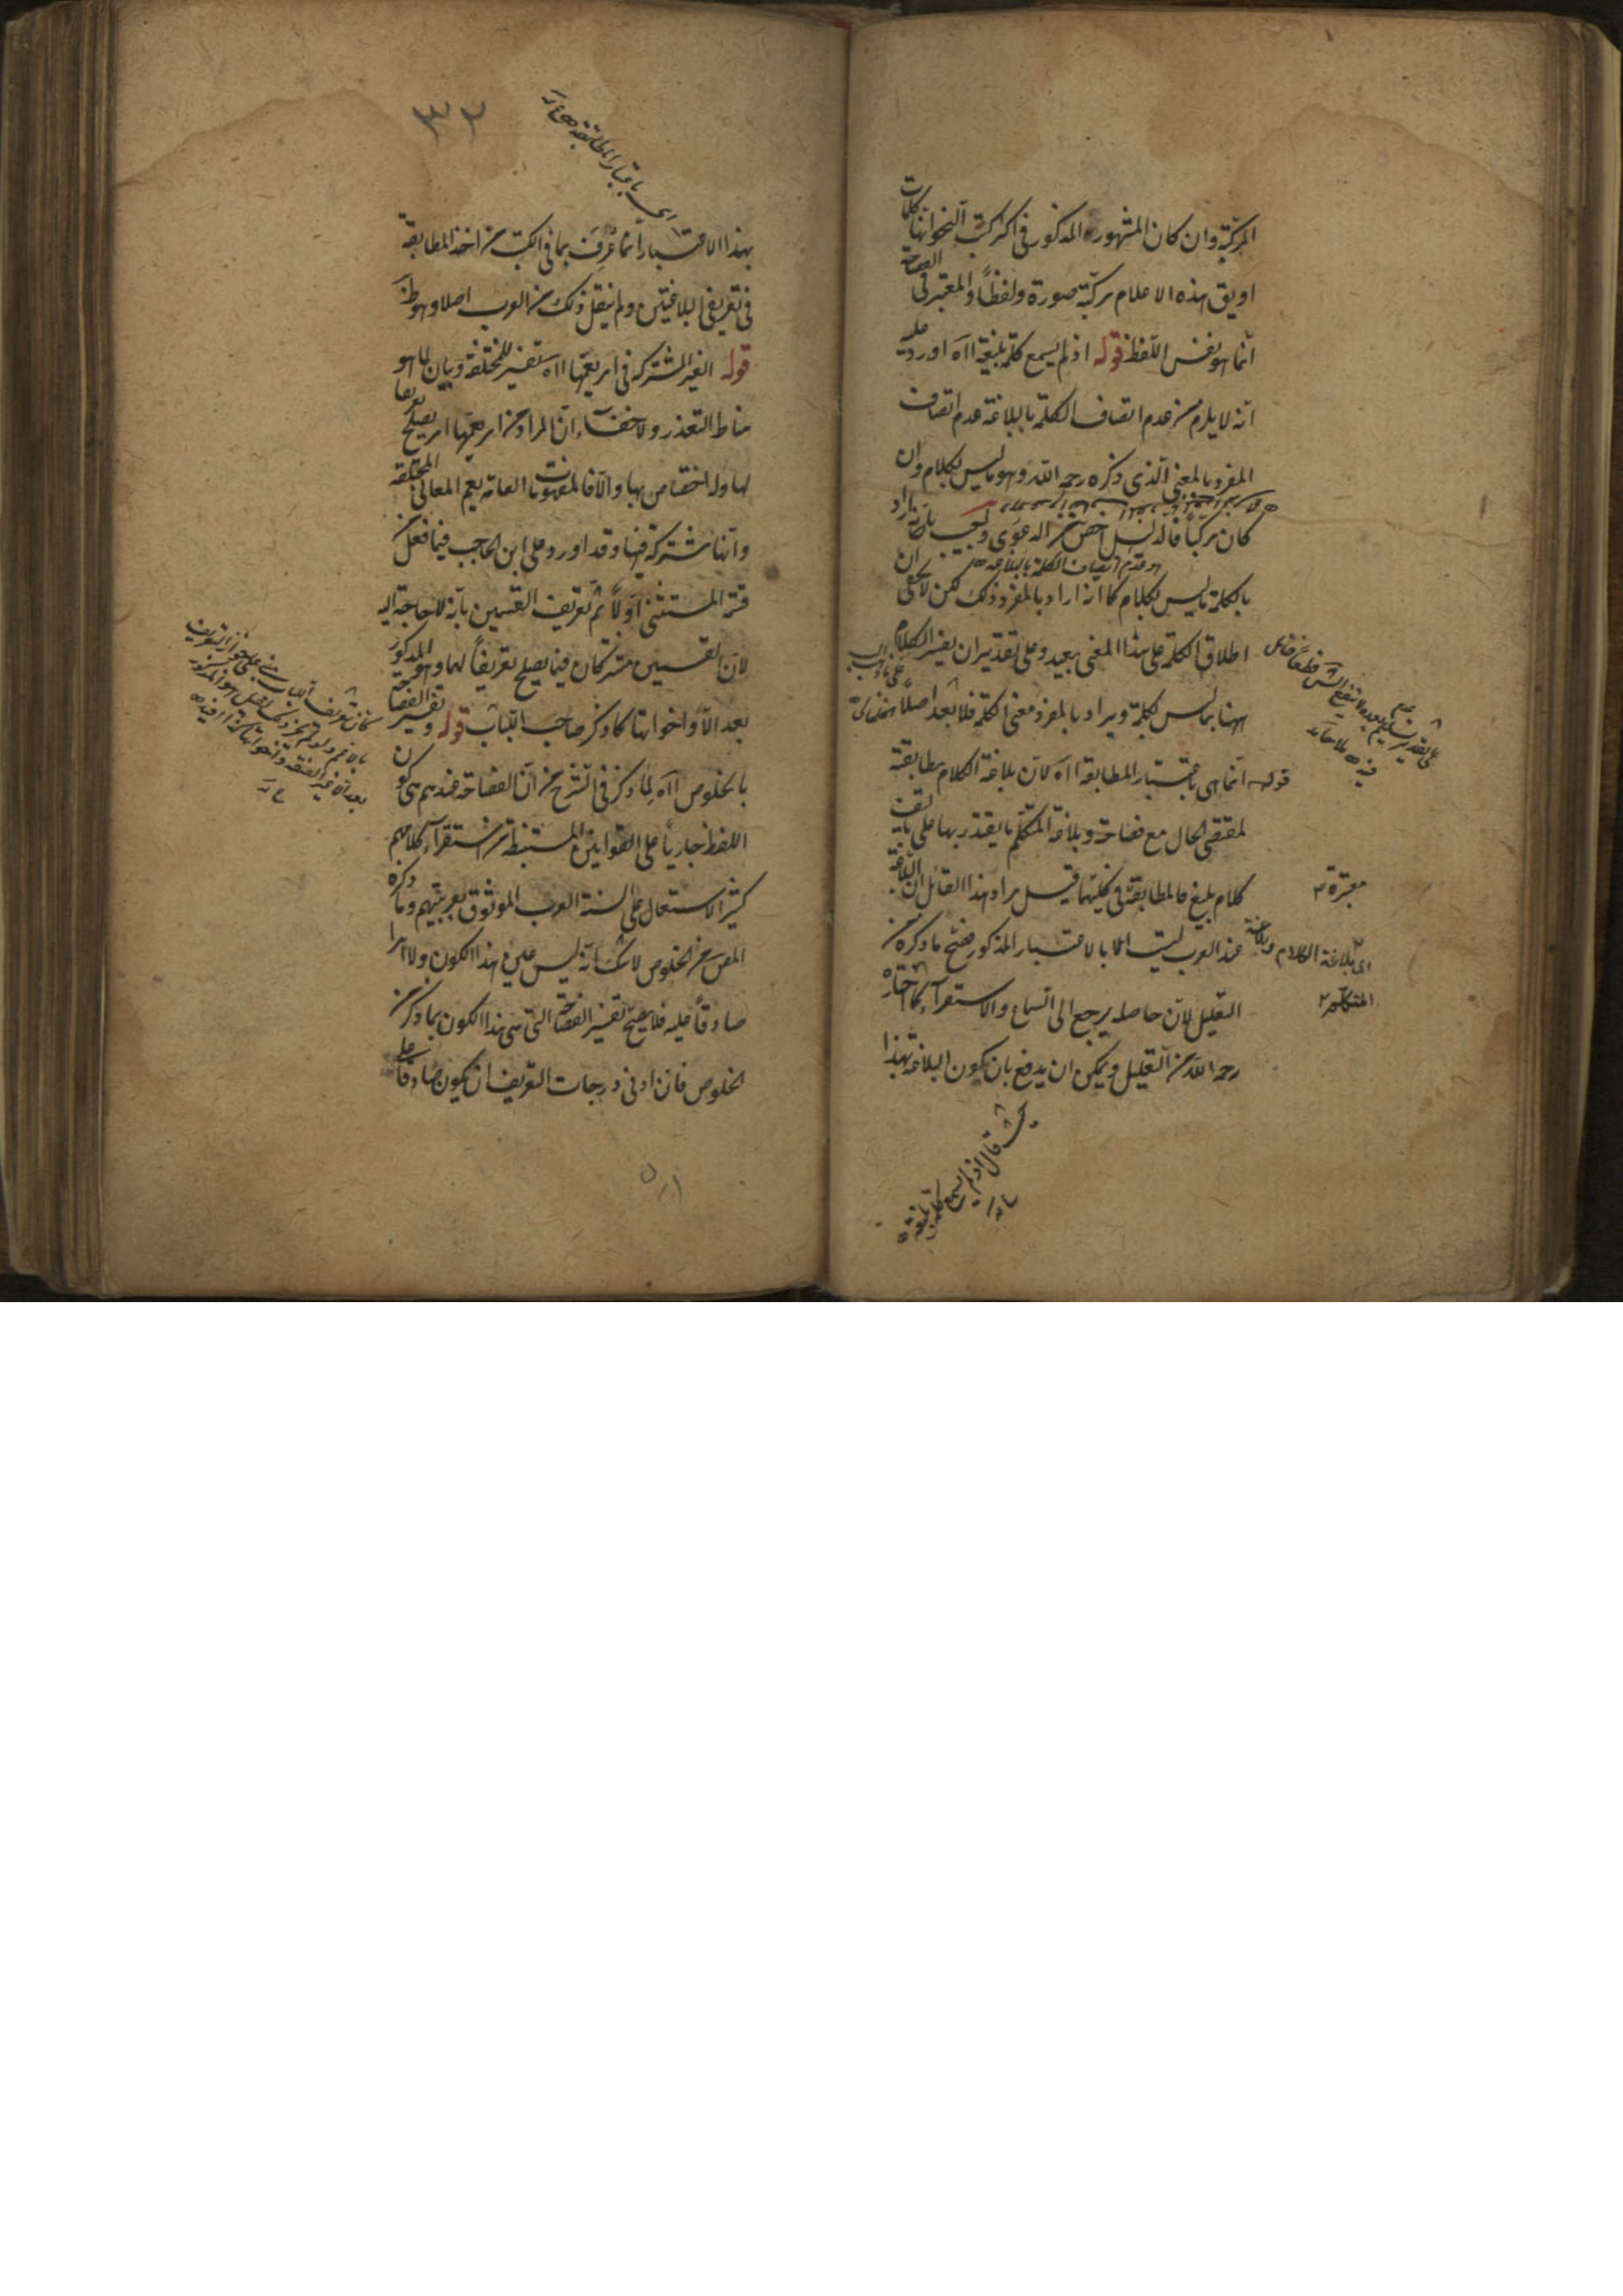 المركبة وان كان المشهور المذكور فى اكثر كتب النحو انها كلمات
او يق هذه الاعلام مركبة صورة ولفظاً والمعتبر فى الفصاحة
انما هو نفس اللفظ قوله اذ لم يسمع كلمة بليغة ااه اورد عليه
انه لا يلزم من عدم اتصاف الكلمة بالبلاغة عدم اتصاف
المفرد بالمعنى الذى ذكره رحمه الله وهو ما ليس بكلام وان
كان مركباً فالدليل اخص من الدعوى واجيب بانه اراد
وهو عدم اتصاف الكلمة بالبلاغة
بالكلمة ما ليس بكلام كما انه اراد بالمفرد ذلك لكن لا يخفى ان
اطلاق الكلمة على هذا المعنى بعيد وعلى تقدير ان يفسر الكلام
ههنا بما ليس بكلمة ويراد بالمفرد معنى الكلمة فلا بعد اصلا
قوله انما هى باعتبار المطابقة ااه لان بلاغة الكلام مطابقته
لمقتضى الحال مع فصاحته وبلاغة المتكلم ما يقتدر بها على تاليف
كلام بليغ فالمطابقة فى كليهما قيل مراد هذا القائل ان البلاغة
معتبرة
عند العرب ليست الا بالاعتبار المذكور فصح ما ذكره من
اى بلاغة الكلام وبلاغة
المتكلم
التعليل لان حاصله يرجع الى السماع والاستقراء كما اختاره
رحمه الله من التعليل ويمكن ان يدفع بان كون البلاغة بهذا
حيث قال اذ لم يسمع كلمة بليغة
٣٢
اى باعتبار المطابقة
بهذا الاعتبار انما عرف بما فى الكتب من اخذ المطابقة
فى تعريفى البلاغتين ولم ينقل ذلك من العرب اصلا وهو ظ
قوله الغير المشتركة فى امر يعمها ااه تفسير للمختلفة وبيان لما هو
مناط التعذر ولا خفاء ان المراد من امر يعمها امر يصلح تعريفا
لها وله اختصاص بها والا فالمفهومات العامة يعم المعانى المختلفة
وانها مشتركة فيها وقد اورد على ابن الحاجب فيما فعل من
قسمة المستثنى اولاً ثم تعريف القسمين بانه لا حاجة اليه
لان القسمين مشتركان فيما يصلح تعريفاً لهما وهو المذكور
بعد الا واخواتها كما ذكر صاحب اللباب قوله وتفسير الفصاحة
بالخلوص ااه لما ذكر فى الشرح من ان الفصاحة عندهم هى كون
اللفظ جارياً على القوانين المستنبطة من استقراء كلامهم
كثير الاستعمال على السنة العرب الموثوق بعربيتهم وما ذكره
المص من الخلوص لا شك انه ليس عين هذا الكون ولا امرا
صادقاً عليه فلا يصح تفسير الفصاحة التى هى هذا الكون بما ذكر من
الخلوص فان ادنى درجات التعريف ان يكون صادقا على